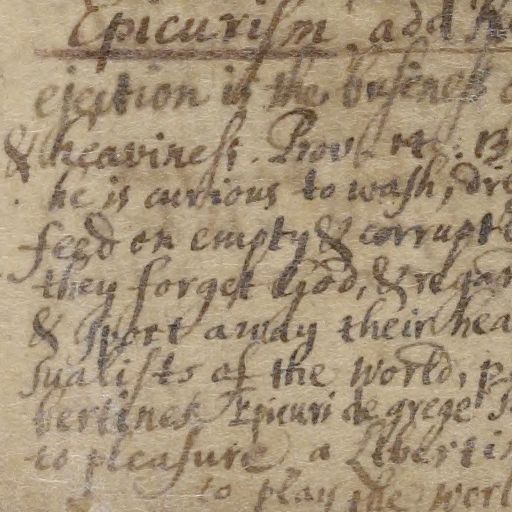 Epicurism add
ejection is the busines
& heaviness. Prov. 14. 13
he is curious to wash, dre
feed on empty & corrupt
they forget God, & regar
& sport away their hea
sualists of the world, p
bertines Epicuri de grege
to pleasure a Liberti
to play the worl